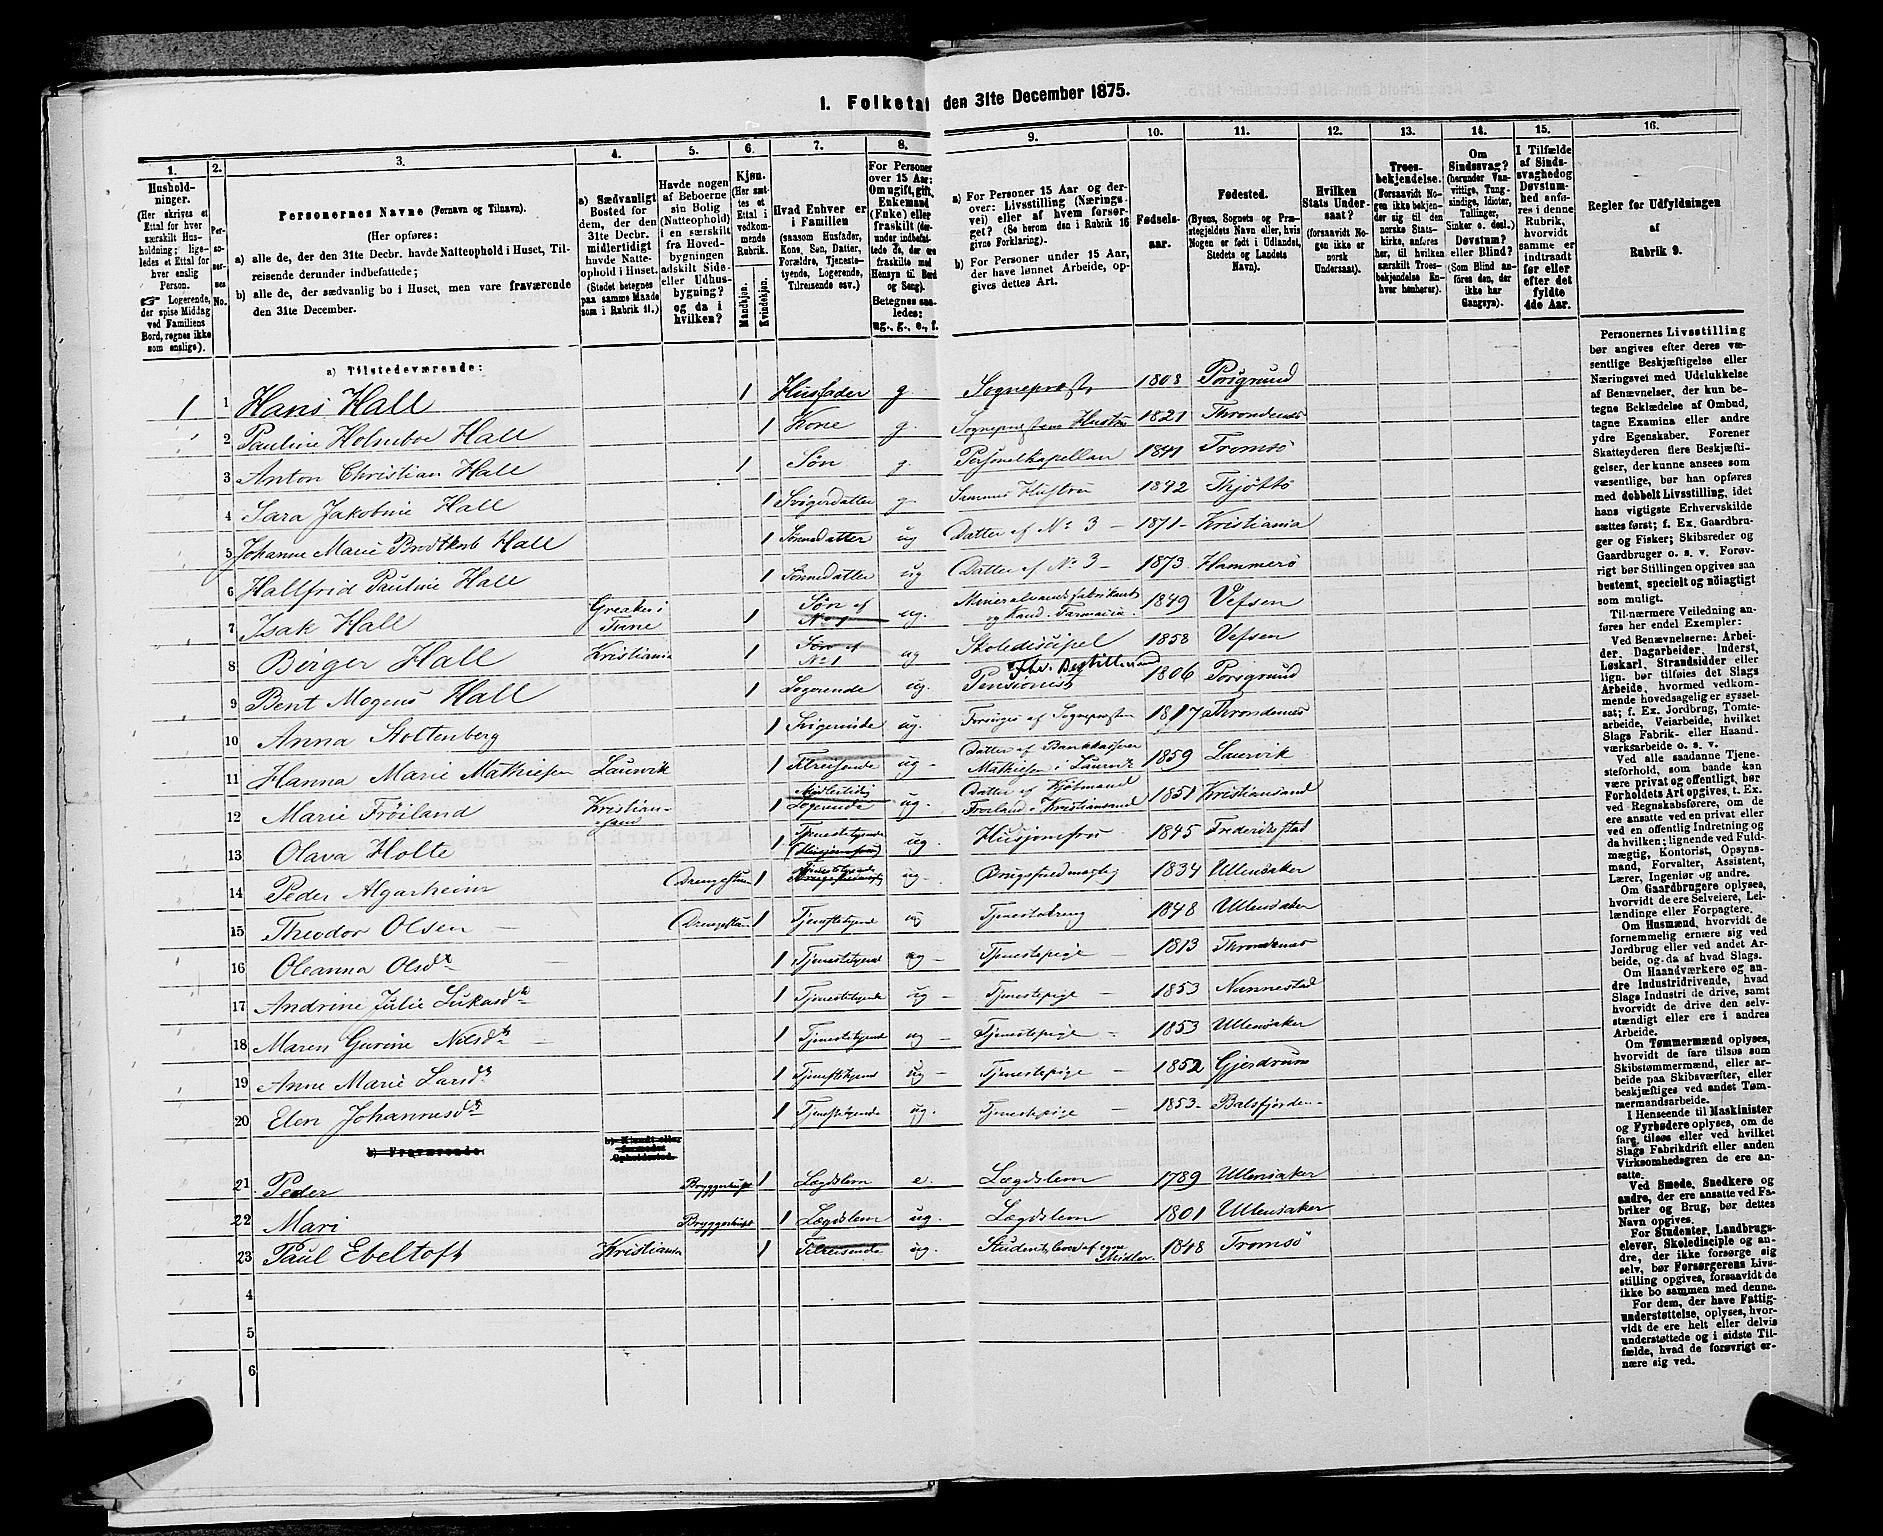 1. Folketal den 31te December 1875.
1. 2. 3. 4. 5. 6. 7. 8. 9. 10. 11. 12. 13. 14. 15. 16.
Hushold-
ninger.
(Her skrives et
Ettal for hver
særskilt Hus-
holdning; lige-
ledes et Ettal for
hver enslig
Person.
Logerende,
der spise Middag
ved Familiens
Bord, regnes ikke
som enslige).
Per-
so-
ner-
nes
No.
Personernes Navne (Fornavn og Tilnavn).
(Her opføres:
a) alle de, der den 31te Decbr. havde Natteophold i Huset, Til-
reisende derunder indbefattede;
b) alle de, der sædvanlig bo i Huset, men vare fraværende
den 31te December.
a) Sædvanligt
Bosted for
dem, der den
31te Decbr.
midlertidigt
havde Natte-
ophold i Huset.
(Stedet betegnes
paa samme Maade
som i Rubrik 11.)
Havde nogen
af Beboerne
sin Bolig
(Natteophold)
i en særskilt
fra Hoved-
bygningen
adskilt Side-
eller Udhus-
bygning?
og da i
hvilken?
Kjøn.
(Her sæt-
tes et
Ettal i
vedkom-
mende
Rubrik.
Mandkjøn.
Kvindekjøn.
Hvad Enhver er
i Familien
(saasom Husfader,
Kone, Søn, Datter,
Forældre, Tjeneste-
tyende, Logerende,
Tilreisende osv.)
For Personer
over 15 Aar:
Om ugift, gift,
Enkemand
(Enke) eller
fraskilt (der-
under indbefat-
tede de, der ere
fraskilte med
Hensyn til Bord
og Seng).
Betegnes saa-
ledes:
ug., g., e., f.
a) For Personer 15 Aar og der-
over: Livsstilling (Nærings-
vei) eller af hvem forsør-
get? (Se herom den i Rubrik 16
givne Forklaring).
b) For Personer under 15 Aar,
der have lønnet Arbeide, op-
gives dettes Art.
Fødsels-
aar.
Fødested.
(Byens, Sognets og Præ-
stegjeldets Navn eller, hvis
Nogen er født i Udlandet,
Stedets og Landets
Navn).
Hvilken
Stats Under-
saat?
(forsaavidt No-
gen ikke er
norsk
Undersaat).
Troes-
bekjendelse.
(Forsaavidt No-
gen ikke bekjen-
der sig til den
norske Stats-
kirke, anføres
her, til hvilken
særskilt Troes-
bekjendelse En-
hver henhører).
Om
Sindssvag?
(herunder Van-
vittige, Tung-
sindige, Idioter,
Tullinger,
Sinker o. desl.)
Døvstum?
eller Blind?
(Som Blind an-
føres den, der
ikke har
Gangsyn).
I Tilfælde
af Sinds-
svaghed og
Døvstum-
hed anfø-
res i denne
Rubrik,
hvorvidt
samme er
indtraadt
før eller
efter det
fyldte
4de Aar.
Regler for Udfyldningen
af
Rubrik 9.
a) Tilstedeværende:
1 1 Hans Hall 1 Husfader g. Sogneprest 1808 Porsgrund
2 Pauline Holmboe Hall 1 Kone g. Sogneprestens Hustru 1821 Throndenæs
3 Anton Christian Hall 1 Søn g. Personelkapellan 1841 Tromsø
4 Sara Jakobine Hall 1 Svigerdatter g Hustru 1842 Thjøttø
5 Johanne Marie Brodtkorb Hall 1 Sønnedatter ug Datter af No 3 - 1871 - Kristiania
6 Hallfrid Pauline Hall 1 Sønnedatter ug Datter af No 3 - 1873 Hammerø
7 Isak Hall Greaker i Tune 1 Søn af No 1 ug. Mineralvandsfabrikant og Kand. Farmacia 1849 Vefsen
8 Birger Hall Kristiania 1 Søn af No 1 ug Skolediscipel 1858 Vefsen
9 Bent Mogens Hall 1 Logerende ug. Pensionist 1806 Porsgrund
10 Anna Stoltenberg 1 Svigerinde ug. Forsørges af Sognepresten 1817 Throndenæs
11 Hanna Marie Mathiesen Laurvik 1 Tilreisende ug - Datter af Bankkasserer Mathiesen i Laurvik 1859 Laurvik
12 Marie Frøiland Kristiansand 1 Midlertidig Logerende ug. Datter af Kjøbmand Frøiland i Kristiansand 1851 Kristiansand
13 Olava Holte 1 Tjenestetyende (Husjomfru) ug. Husjomfru 1845 Frederikstad
14 Peder Algarheim Drengestuen 1 Tjenestetyende ug. Brugsfuldmægtig 1834 Ullensaker
15 Theodor Olsen - Drengestuen 1 Tjenestetyende ug Tjenestedreng 1848 Ullensaker
16 Oleanna Olsdtr 1 Tjenestetyende ug - Tjenestepige - 1813 Throndenæs
17 Andrine Julie Lukasdtr 1 Tjenestetyende ug - Tjenestepige - 1853 Nannestad
18 Maren Gurine Nilsdtr - 1 Tjenestetyende ug - Tjenestepige - 1853 Ullensaker
19 Anne Marie Larsdtr 1 Tjenestetyende ug - Tjenestepige - 1852 Gjerdrum
20 Elen Johannesdtr 1 Tjenestetyende ug. Tjenestepige - 1853 - Balsfjorden -
b) Fraværende: b) Kjendt eller formodet Opholdssted.
21 Peder Bryggerhuset 1 Lægdslem e. Lægdslem 1789 Ullensaker
22 Mari Bryggerhuset 1 Lægdslem ug. Lægdslem 1801 Ullensaker
23 Paul Ebeltoft Kristiania 1 Tilreisende ug. Student lever af egne Midler 1848 Tromsø
4
5
6
Personernes Livsstilling
bør angives efter deres væ-
sentlige Beskjæftigelse eller
Næringsvei med Udelukkelse
af Benævnelser, der kun be-
tegne Beklædelse af Ombud,
tagne Examina eller andre
ydre Egenskaber. Forener
Skatteyderen flere Beskjæfti-
gelser, der kunne ansees som
væsentlige, bør han opføres
med dobbelt Livsstilling, idet
hans vigtigste Erhvervskilde
sættes først; f. Ex. Gaardbru-
ger og Fisker; Skibsreder og
Gaardbruger o. s. v. Forøv-
rigt bør Stillingen opgives saa
bestemt, specielt og nøiagtigt
som muligt.
Til nærmere Veiledning an-
føres her endel Exempler:
Ved Benævnelserne: Arbei-
der, Dagarbeider, Inderst,
Løskarl, Strandsidder eller
lign. bør tilføies det Slags
Arbeide, hvormed vedkom-
mende hovedsagelig er syssel-
sat; f. Ex. Jordbrug, Tomte-
arbeide, Veiarbeide, hvilket
Slags Fabrik- eller Haand-
værksarbeide o. s. v.
Ved alle saadanne Tjene-
steforhold, som baade kan
være privat og offentligt, bør
Forholdets Art opgives, t. Ex.
ved Regnskabsførere, om de
ere ansatte ved en privat eller
ved en offentlig Indretning og
da hvilken; lignende ved Fuld-
mægtig, Kontorist, Opsyns-
mand, Forvalter, Assistent,
Lærer, Ingeniør og andre.
Om Gaardbrugere oplyses,
hvorvidt de ere Selveiere, Lei-
lændinge eller Forpagtere.
Om Husmænd, hvorvidt de
fornemmelig ernære sig ved
Jordbrug eller ved andet Ar-
beide, og da af hvad Slags.
Om Haandværkere og an-
dre Industridrivende, hvad
Slags Industri de drive, samt
hvorvidt de drive den selv-
stændigt eller ere i andres
Arbeide.
Om Tømmermænd oplyses,
hvorvidt de fare tilsøs som
Skibstømmermænd, eller ar-
beide paa Skibsværfter, eller
beskjæftiges ved andet Tøm-
mermandsarbeide.
I Henseende til Maskinister
og Fyrbødere oplyses, om de
fare tilsøs eller ved hvilket
Slags Fabrikdrift eller anden
Virksomhedsgren de ere an-
satte.
Ved Smede, Snedkere og
andre, der ere ansatte ved Fa-
briker og Brug, bør dettes
Navn opgives.
For Studenter, Landbrugs-
elever, Skoledisciple og an-
dre, der ikke forsørge sig
selv, bør Forsørgerens Livs-
stilling opgives, forsaavidt de
ikke bo sammen med denne.
For dem, der have Fattig-
understøttelse, oplyses, hvor-
vidt de ere helt eller delvis
understøttede og i sidste Til-
fælde, hvad de forøvrigt er-
nære sig ved.